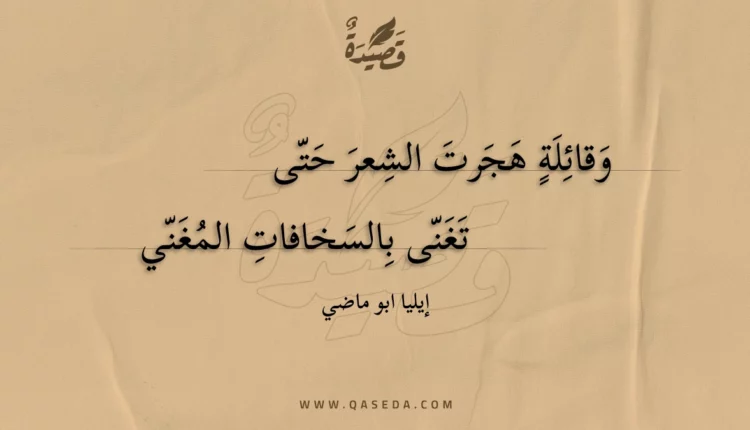 قَصِيدَةٌ
وَقائِلَةٍ هَجَرتَ الشِعرَ حَتّى
تَغَنّى بِالسَخافاتِ المُغَنّي
إيليا ابو ماضي
WWW.QASEDA.COM